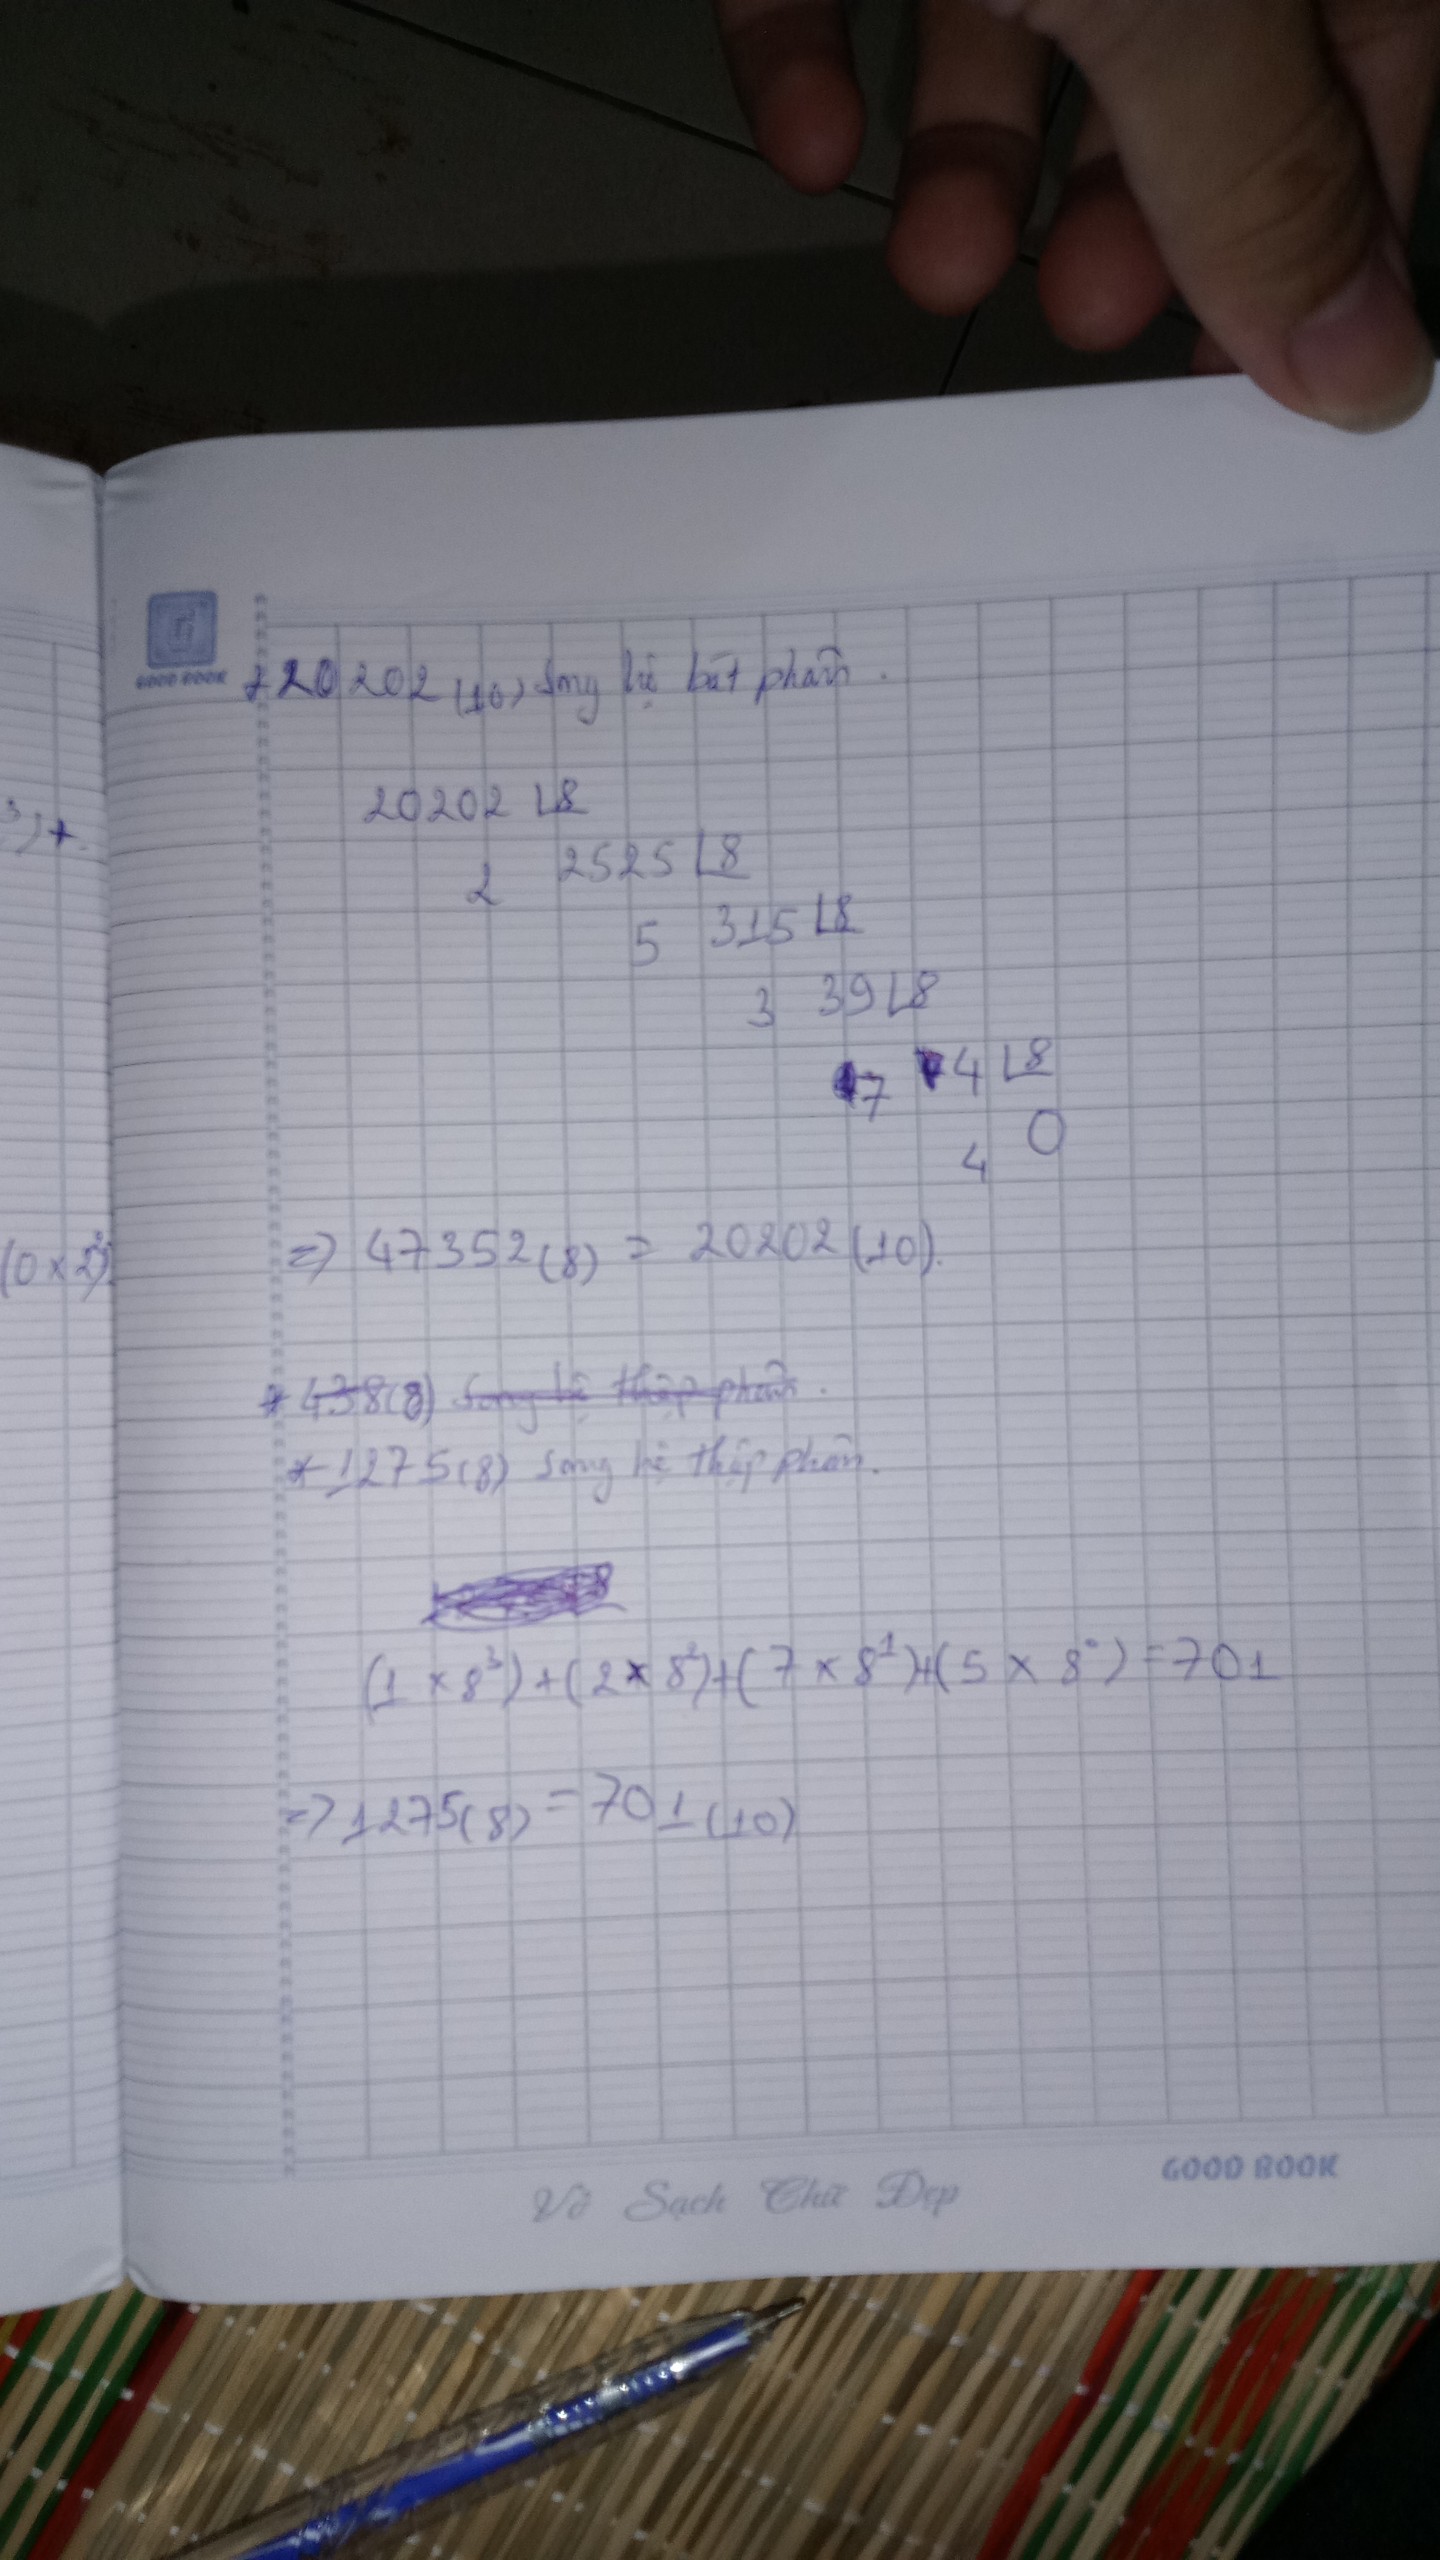 GOOD BOOK
+20202(10) Sang hệ bát phân.
20202 8
2 2525 8
5 315 8
3 39 8
7 4 8
4 0
=> 47352(8) = 20202(10).
* 438(8) Sang hệ thập phân.
* 1275(8) Sang hệ thập phân.
(1 x 8³)+(2 x 8²)+(7 x 8¹)+(5 x 8°)=701
=> 1275(8) = 701(10)
3)+
(0 x 2²)
Vở Sạch Chữ Đẹp
GOOD BOOK